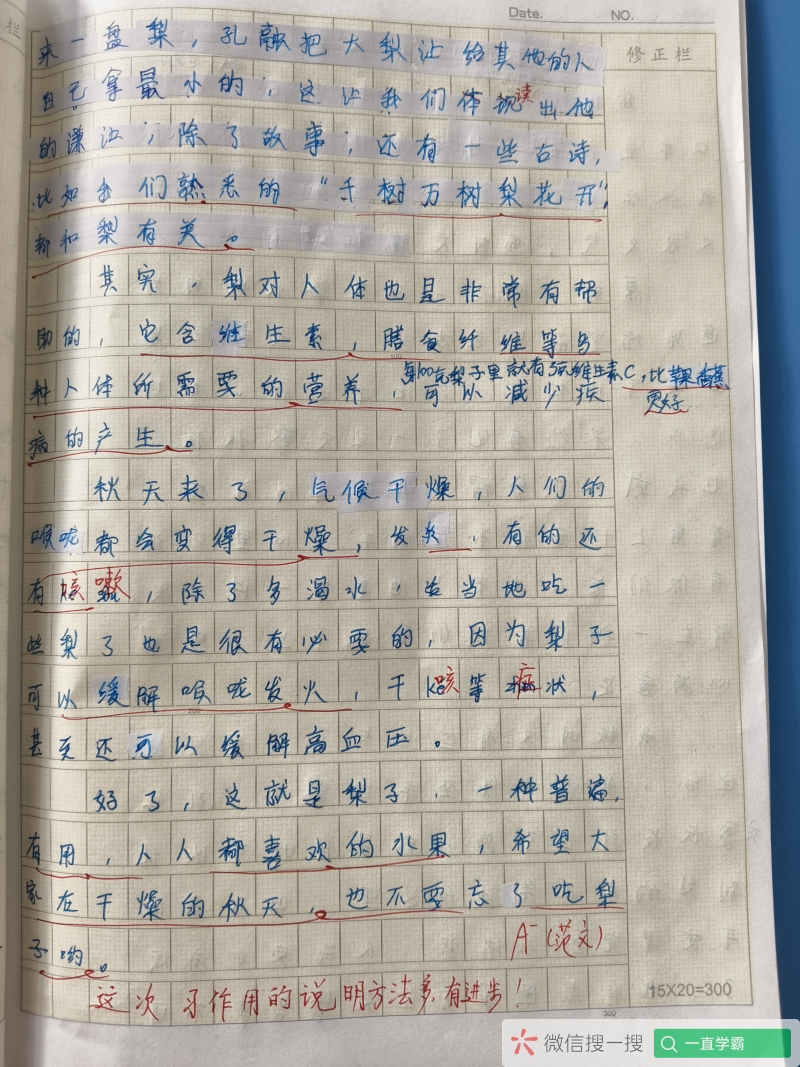 Date.
NO.
修正栏
来一盘梨，孔融把大梨让给其他的人
自己拿最小的，这让我们体现读出他
的谦让，除了故事，还有一些古诗，
比如我们熟悉的“千树万树梨花开”，
都和梨有关。
其实，梨对人体也是非常有帮
助的，它含维生素，膳食纤维等多
种人体所需要的营养，可以减少疾
每100克梨子里就有 维生素C，比苹果
更好
病的产生。
秋天来了，气候干燥，人们的
喉咙都会变得干燥，发炎，有的还
有咳嗽，除了多喝水，适当地吃一
些梨子也是很有必要的，因为梨子
可以缓解喉咙发火，干咳等症状，
甚至还可以缓解高血压。
好了，这就是梨子，一种普遍，
有用，人人都喜欢的水果，希望大
家在干燥的秋天，也不要忘了吃梨
子哟。
A-（范文）
这次习作用的说明方法多，有进步！
15X20=300
微信搜一搜
一直学霸